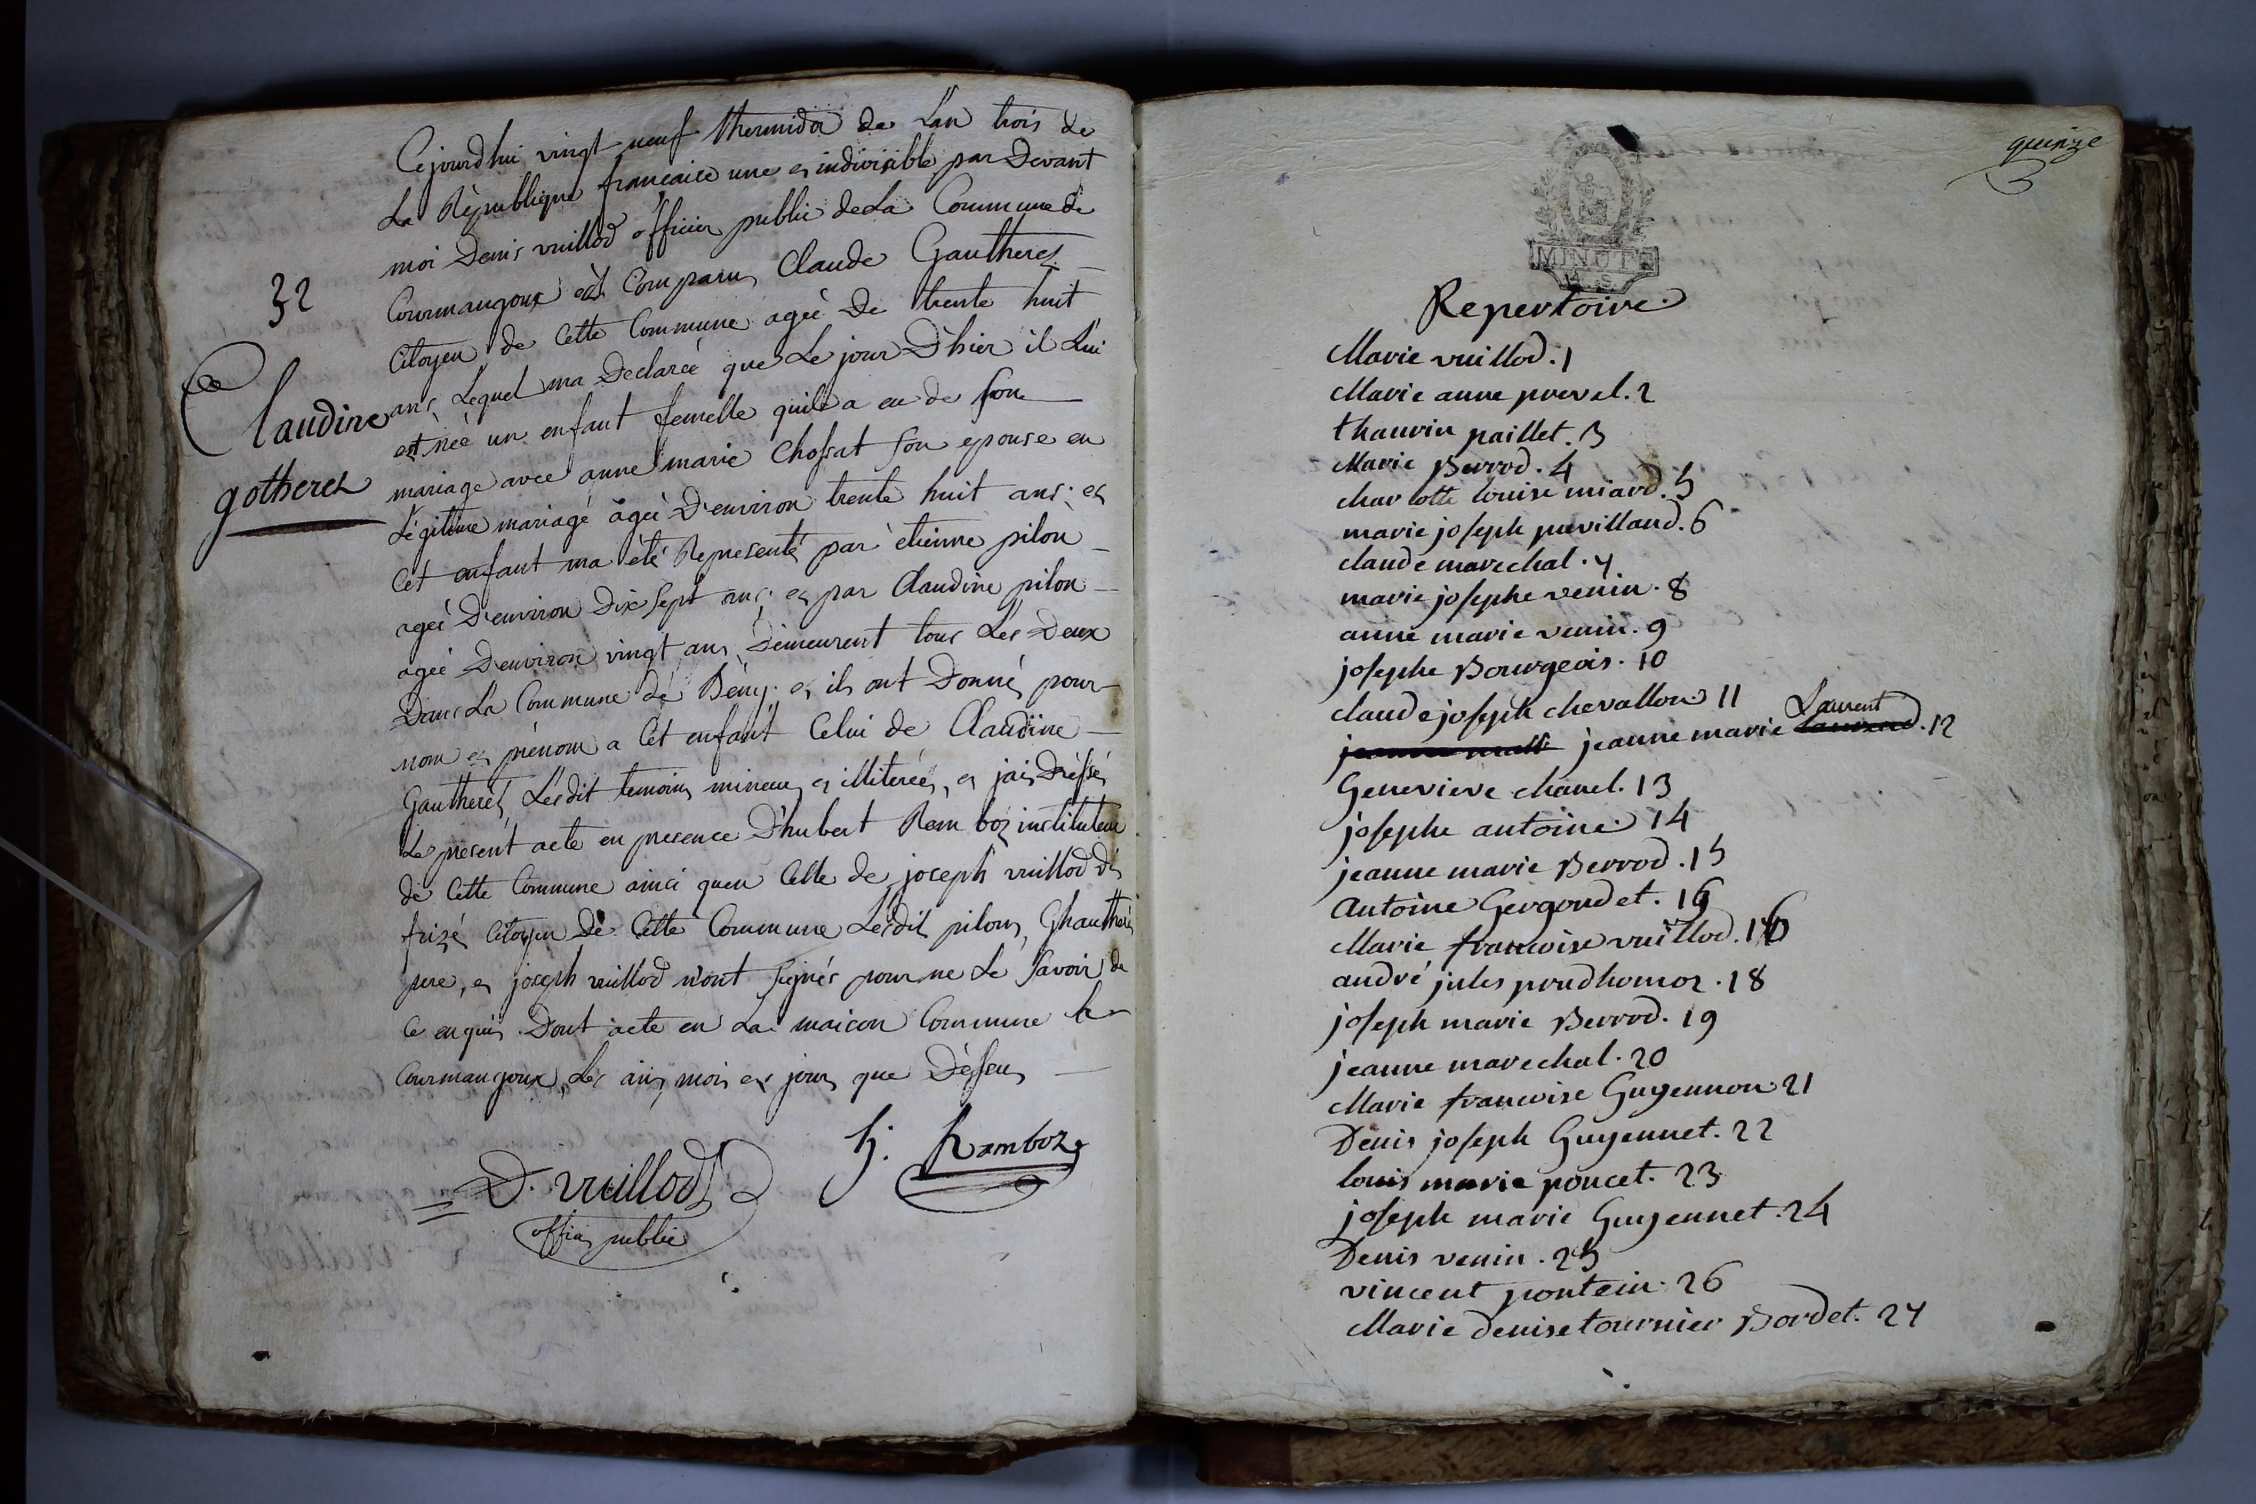 Cejourdhui vingt neuf thermidor de L'an trois de
La République francaise une et indivisible par Devant
moi Denis vuillod officier public de La Commune de
Courmangoux est Comparu Claude Gautheret
Citoyen de Cette Commune agée De trente huit
ans Lequel ma Declaré que Le jour D'hier il Lui
est née un enfant femelle quil a eu de son
mariage avec anne marie Chossat son epouse en
Légitime mariage âgée D'environ trente huit ans et
Cet enfant ma été Representé par etienne pilon
ageé D'environ Dix sept ans et par Claudine pilon
ageé D'environ vingt ans Demeurent tous Les Deux
Dans La Commune de Bény et ils ont Donnés pour
nom et prénom a Cet enfant Celui de Claudine
Gautheret Lesdit temoins mineurs et illiterés, et jais Dressé
Le present acte en presence D'hubert Ramboz instituteur
de Cette Commune ainci quen Celle de joseph vuillod dit
frizé Citoyen De Cette Commune Lesdit pilons, Ghautheret
pere, et joseph vuillod n'ont signés pour ne Le Savoir de
Ce enquis. Dont acte en La maison Commune de
Courmangoux, Les ans, mois et jours que Dessus
32
Claudine
gotheret
D. vuillod
officier public
h. Ramboz
quinze
MINUTE
Repertoire
Marie vuillod. 1
Marie anne prevel. 2
thauvin paillet. 3
Marie Berrod. 4
charlotte louise miard. 5
marie joseph puvilland. 6
claude marechal. 7
marie josephe venin. 8
anne marie venin. 9
josephe Bourgeois. 10
claude joseph chevallon 11
jeanne marie Laurent 12
Genevieve chanel. 13
josephe antoine 14
jeanne marie Berrod. 15
Antoine Gergondet. 16
Marie francoise vuillod. 16
andré jules prudhomoz. 18
joseph marie Berrod. 19
jeanne marechal. 20
Marie francoise Guyennon 21
Denis joseph Guyennet. 22
louis marie poncet. 23
joseph marie Guyennet. 24
Denis venin. 25
vincent pontein. 26
Marie denise tournier Bordet. 27